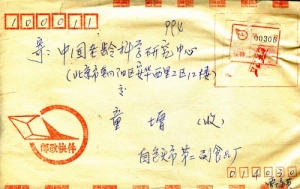 100011
994
寄：中国老龄科学研究中心
（北京市朝阳区安华西里二区12楼）
童增（收）
包头市第二副食品厂
邮政快件
00306
014030